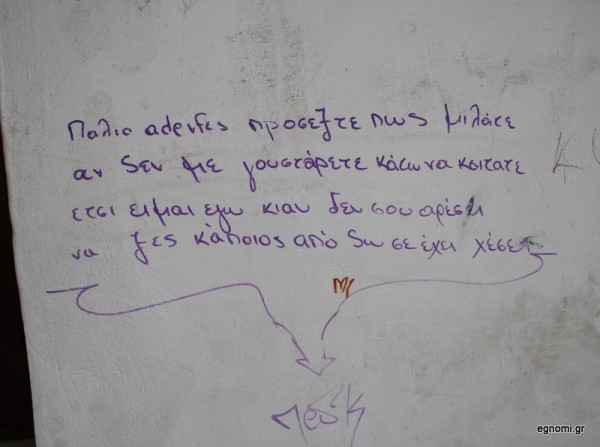 Παλιο αδερφες προσεξτε πως μιλάτε
αν δεν με γουστάρετε κάτω να κοιτατε
ετσι ειμαι εγω κι αν δεν σου αρέσει
να ξες κάποιος από δω σε έχει χέσει
egnomi.gr